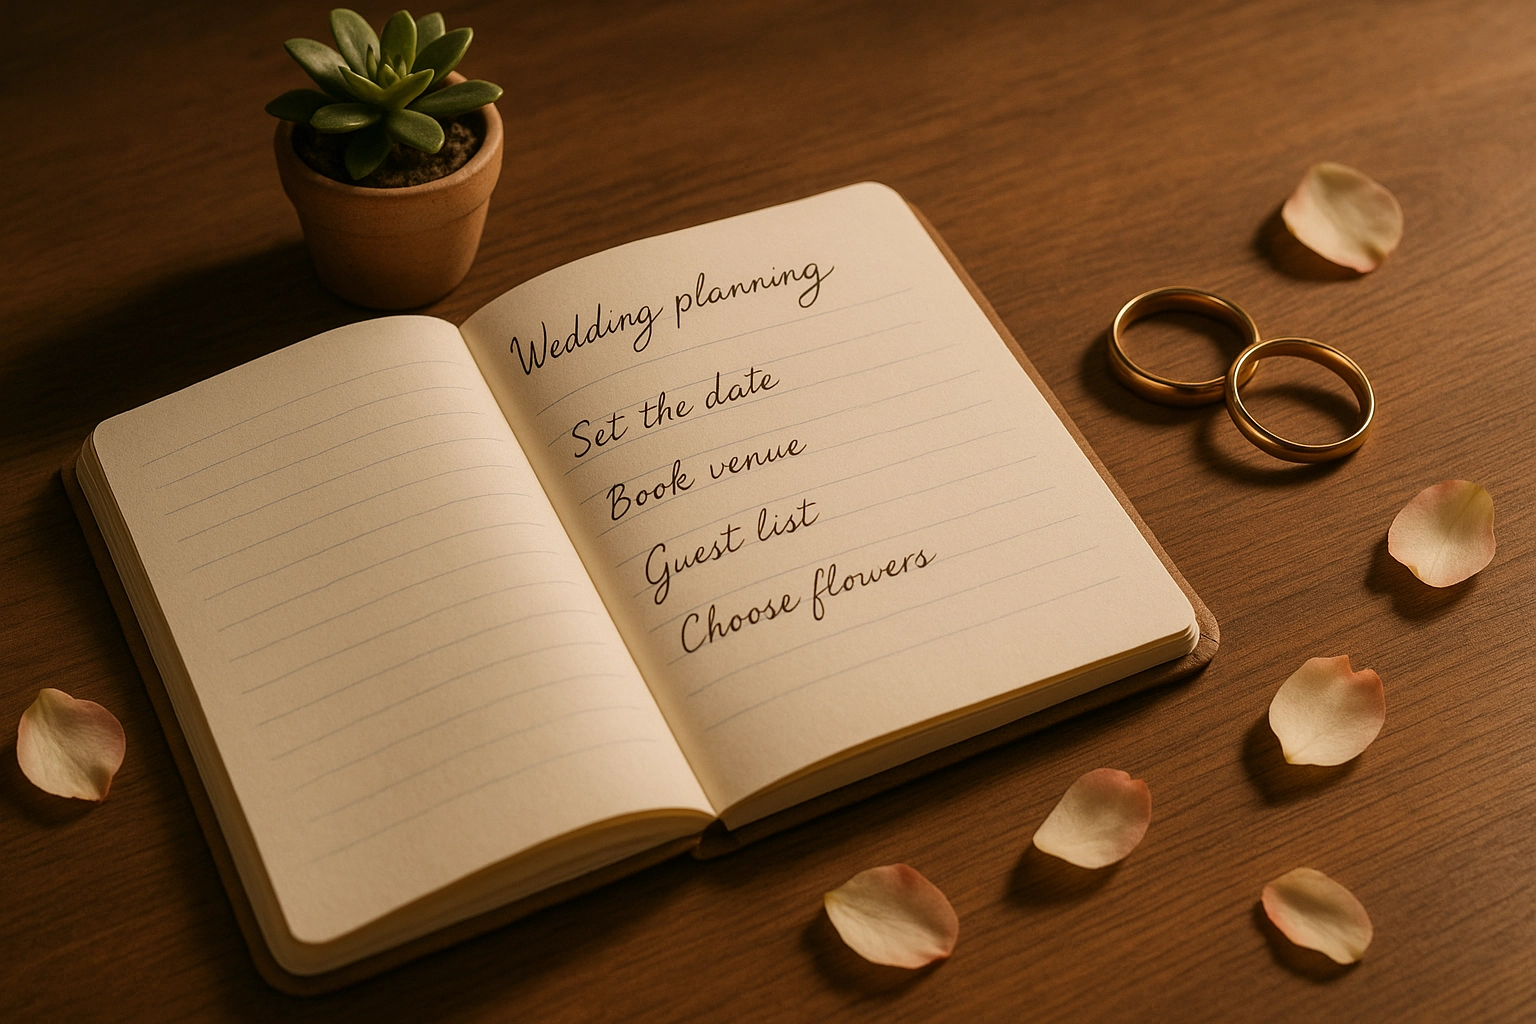 Wedding planning
Set the date
Book venue
Guest list
Choose flowers